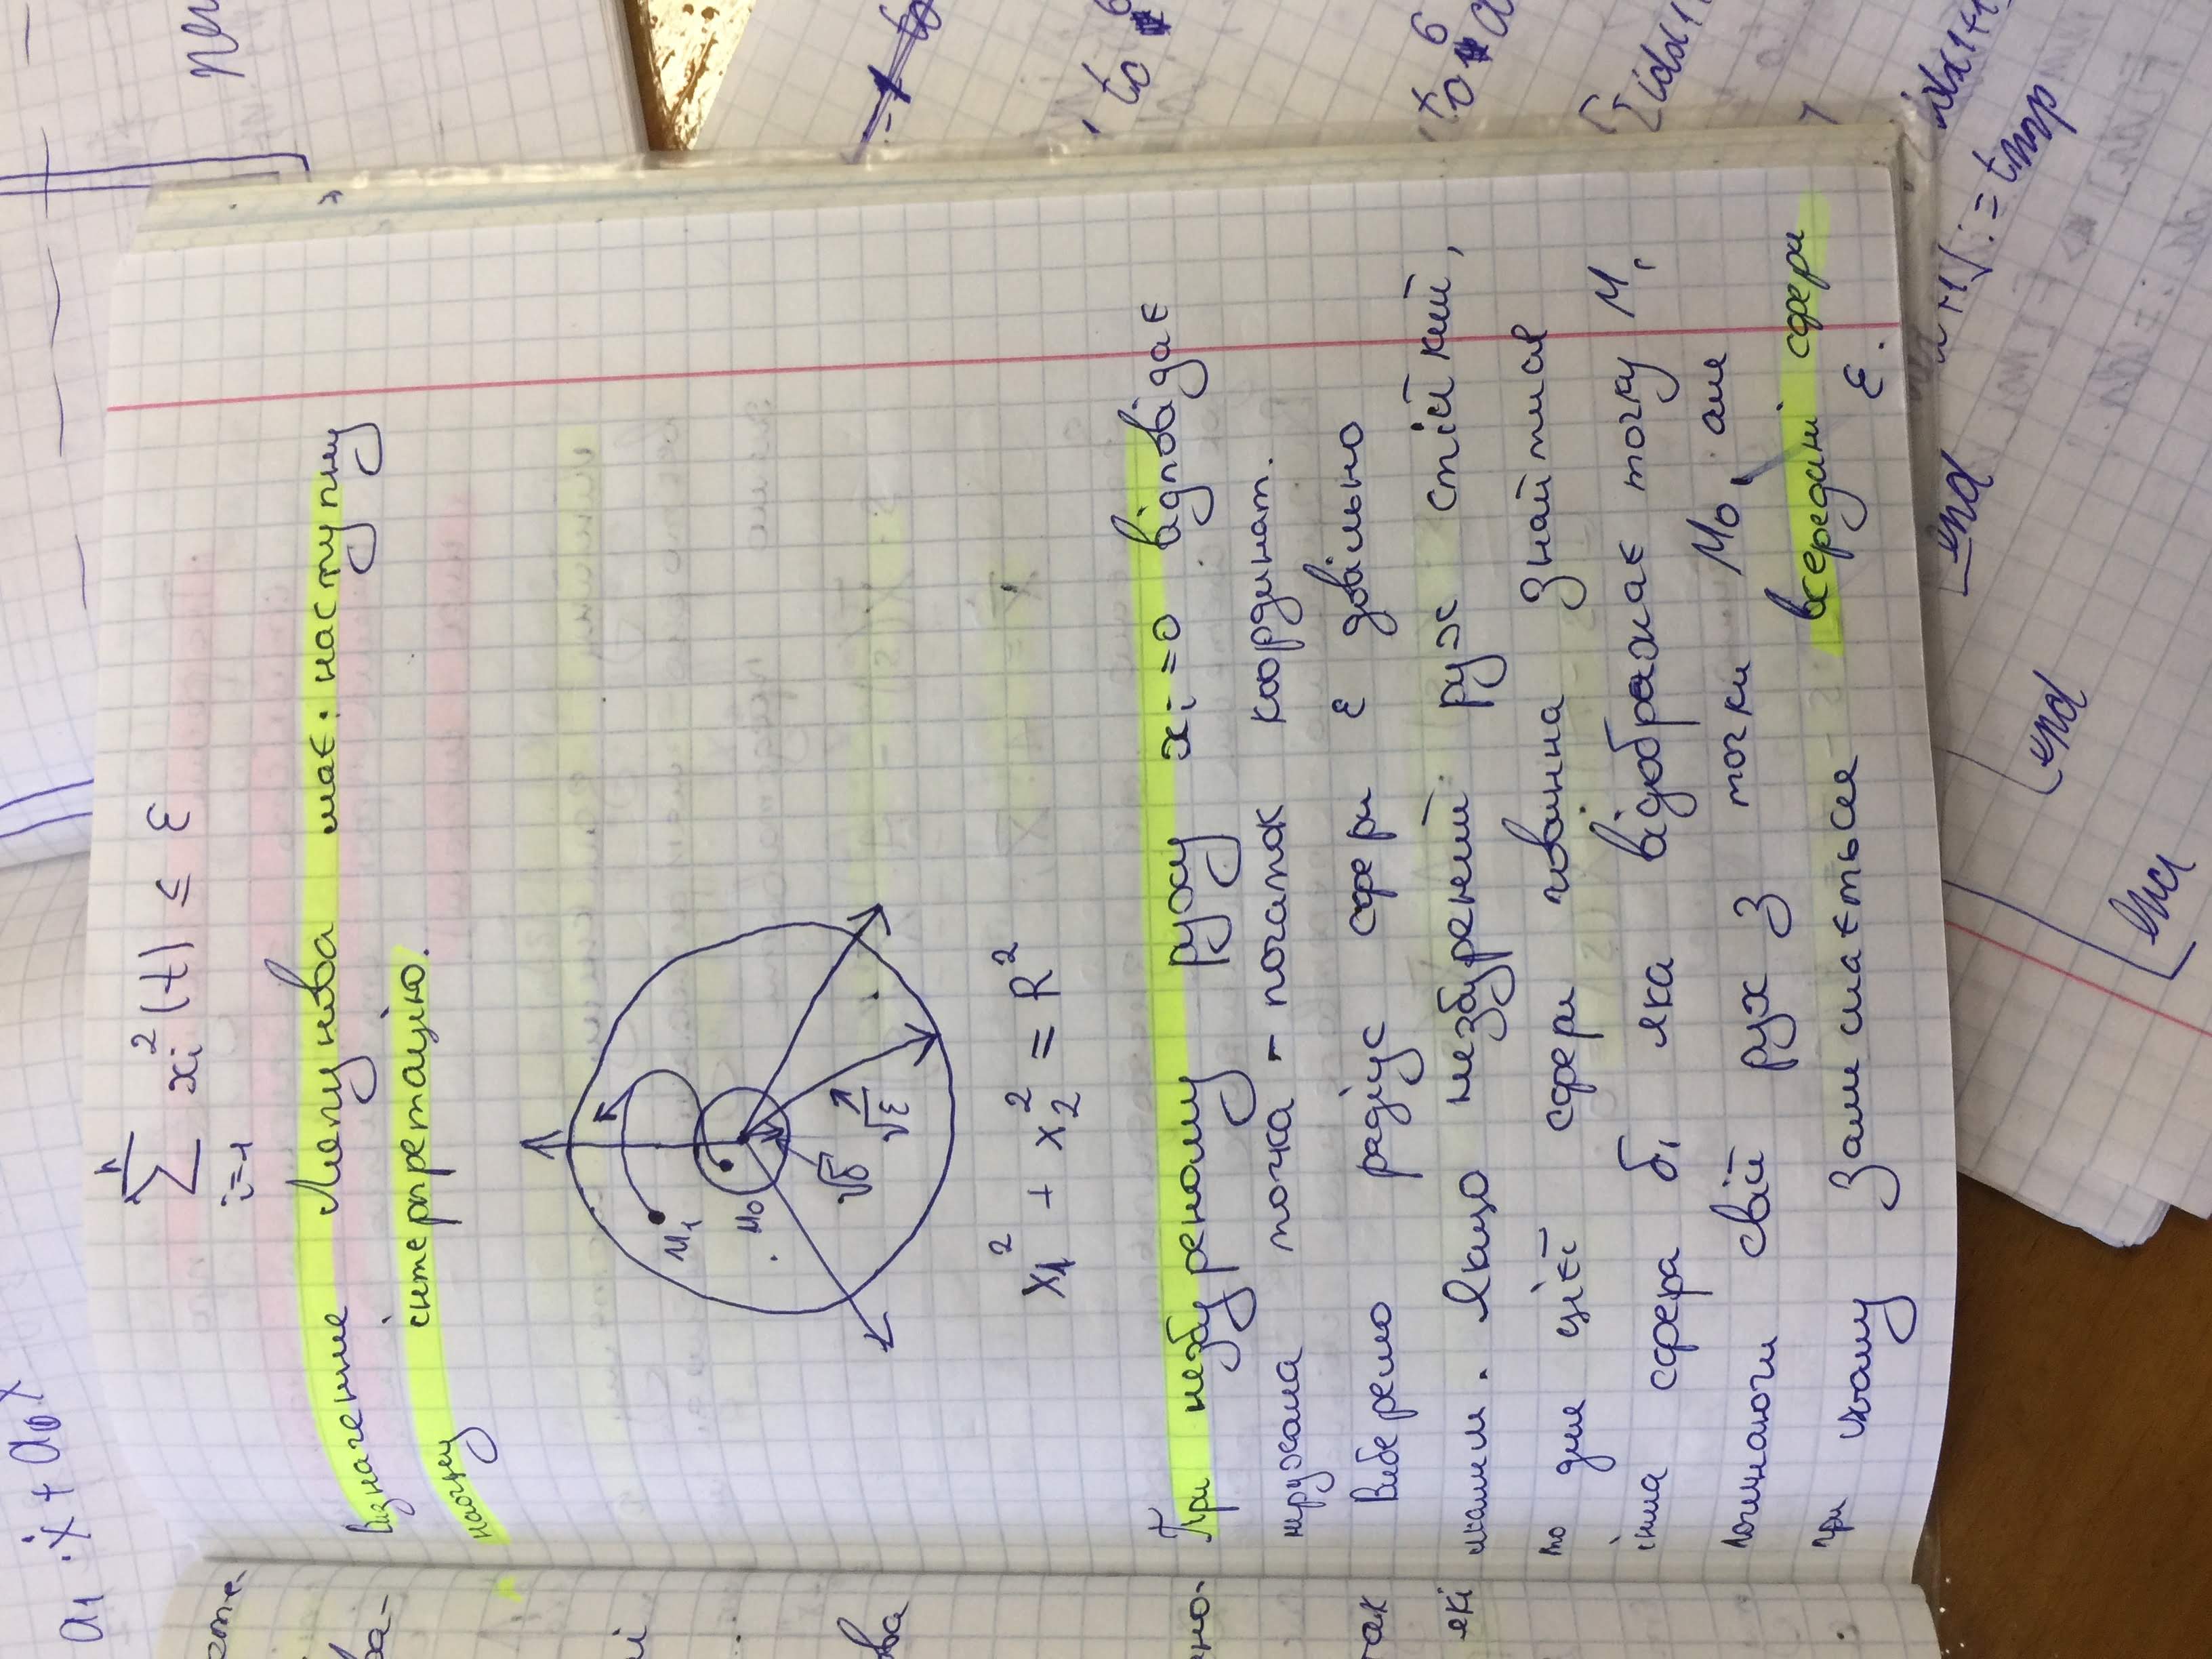 a₁ · ẋ + a₀ x
n
∑ xᵢ²(t) ≤ ε
i=1
Визначення Ляпунова має наступну
наочну інтерпретацію.
M₁
M₀
√δ
√ε
x₁² + x₂² = R²
При незбуреному руху xᵢ=0 відповідає
нерухома точка - початок координат.
Виберемо радіус сфери ε довільно
малим. Якщо незбурений рух стійкий,
то для цієї сфери повинна знайтися
інша сфера δ, яка відображає точку M,
починаючи свій рух з точки M₀, але
при цьому залишається всередині сфери
ε.
ова
но-
так
які
end
:= tmp
end
end